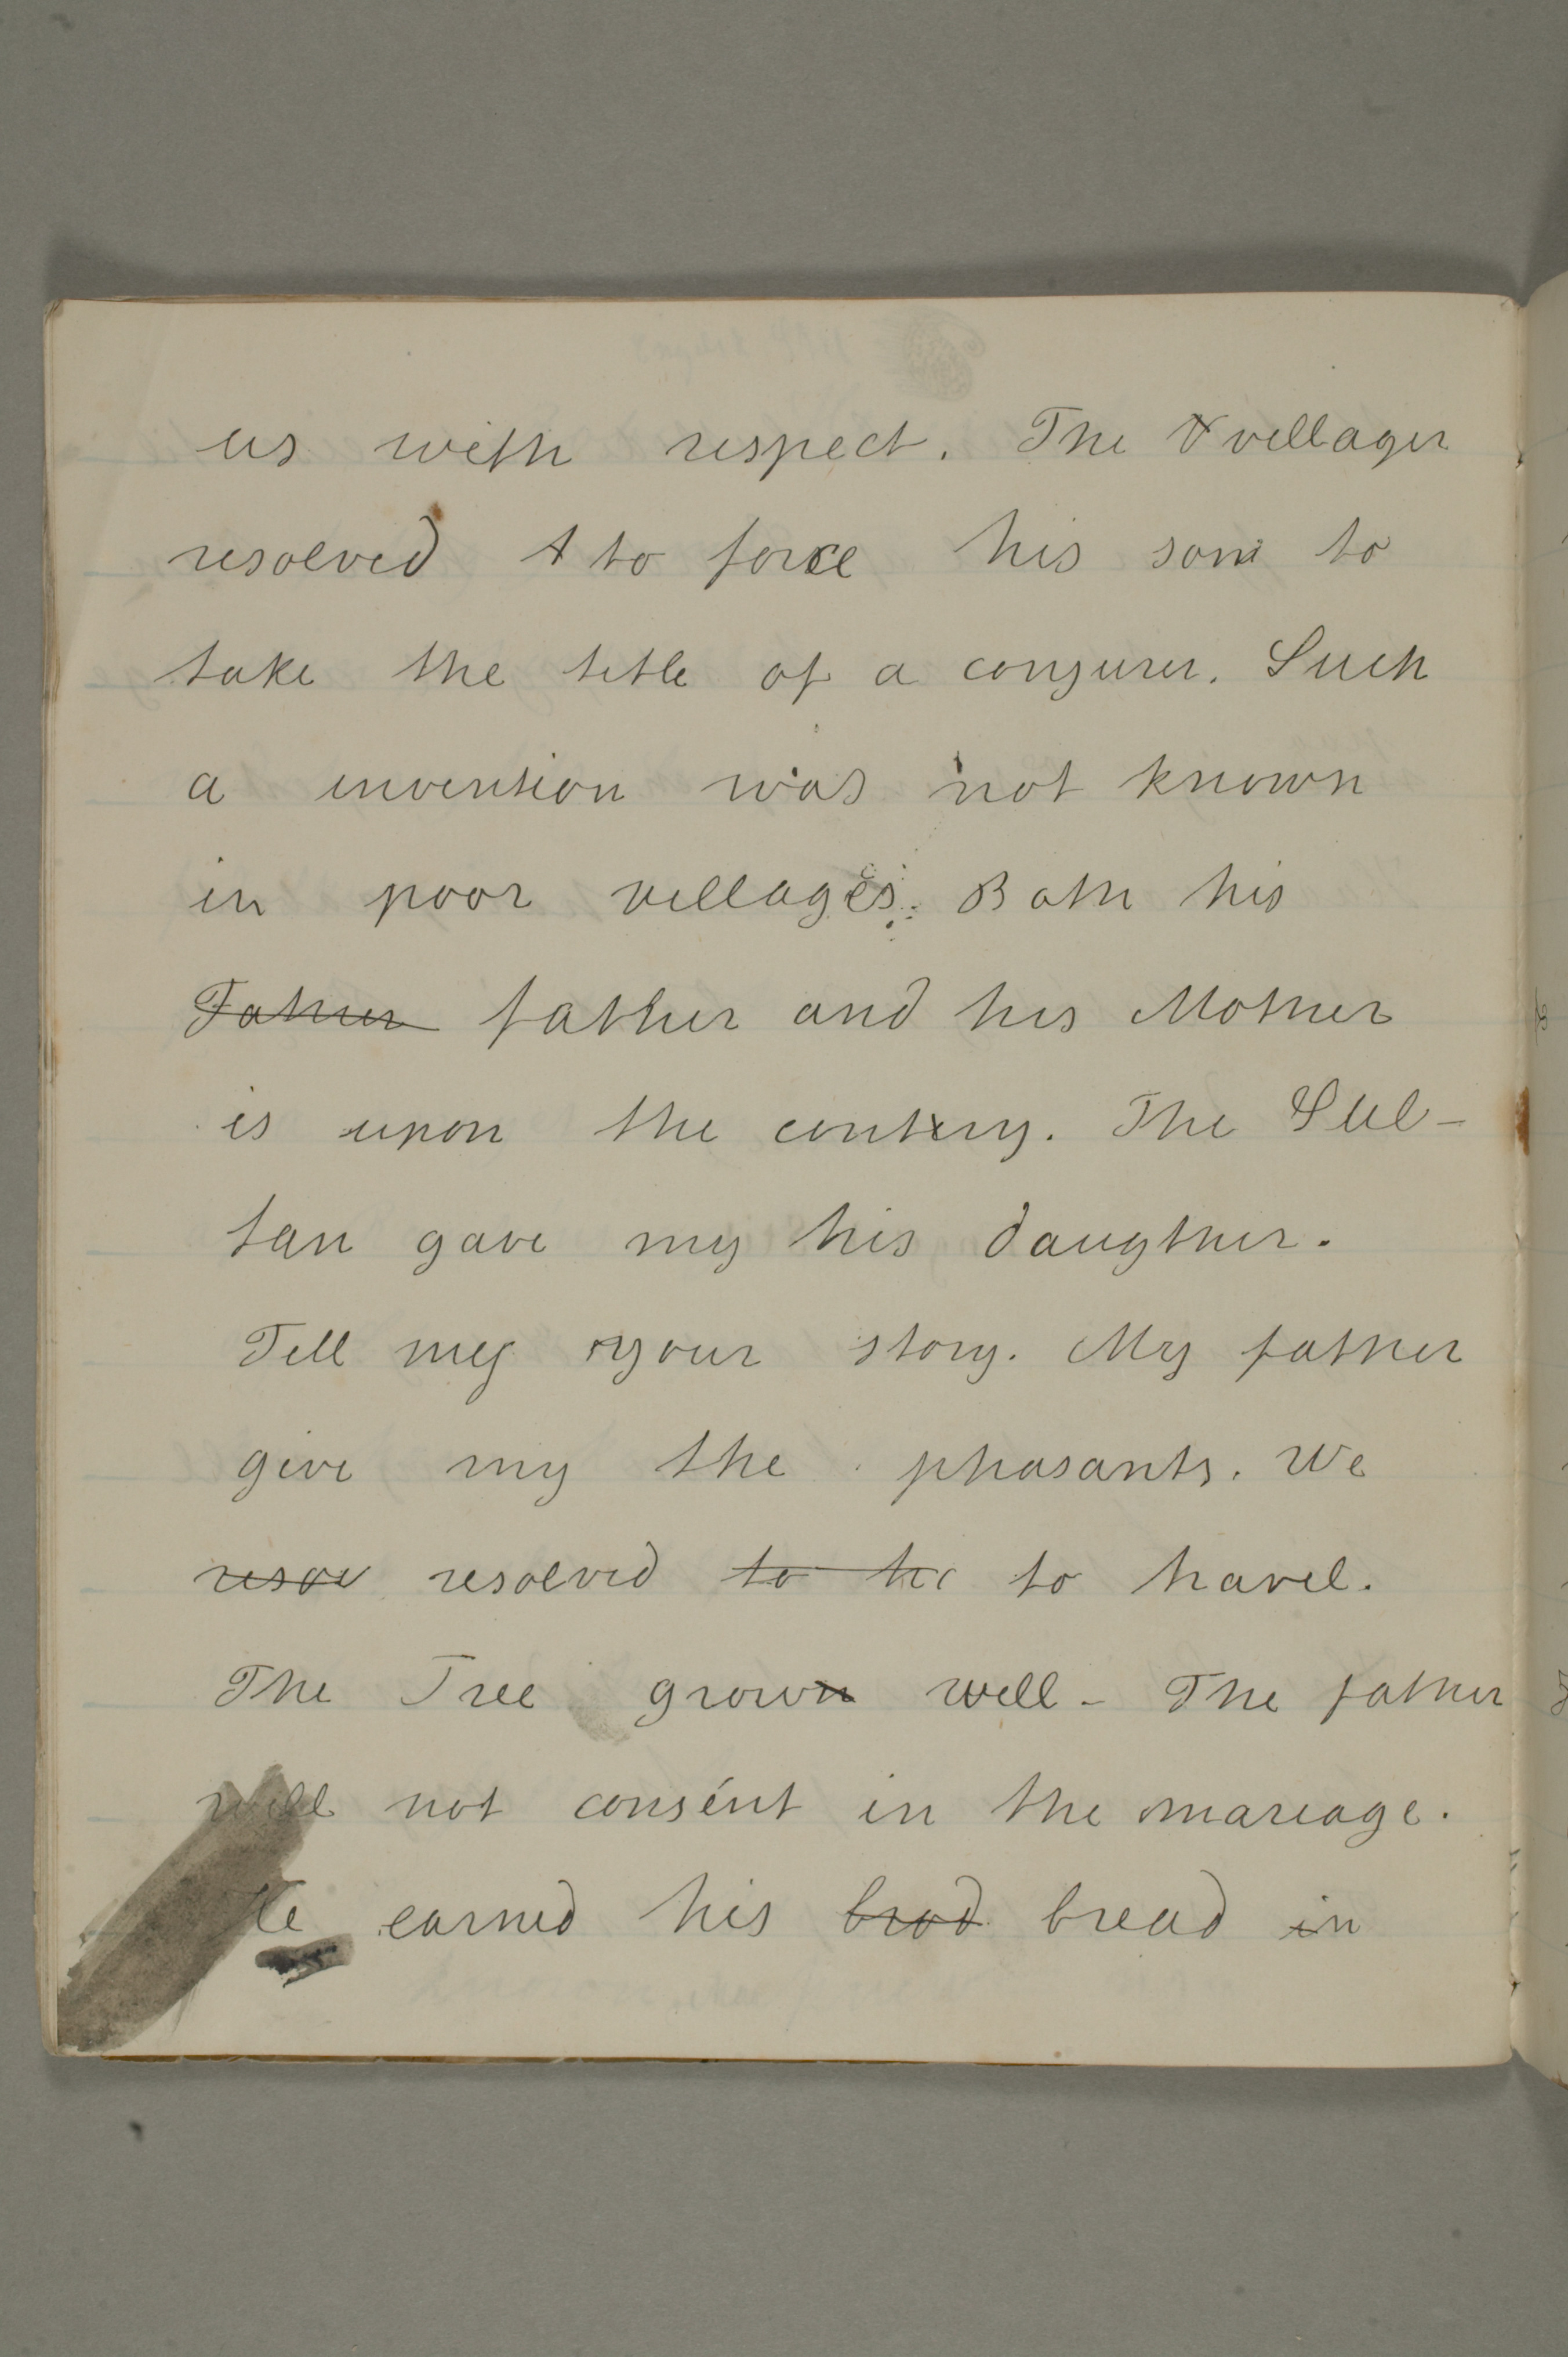 us with respect. The V villager
resolved t to force his son to
take the title of a conjurer. Such
a invention was not known
in poor villages. Both his
Father father and his Mother
is upon the contery. The Sul-
tan gave my his daugther.
Tell my your story. My father
give my the phasants. We
resov resolved to tr to travel.
The Tree grown well - The father
will not consent in the mareage.
He earned his brod bread in